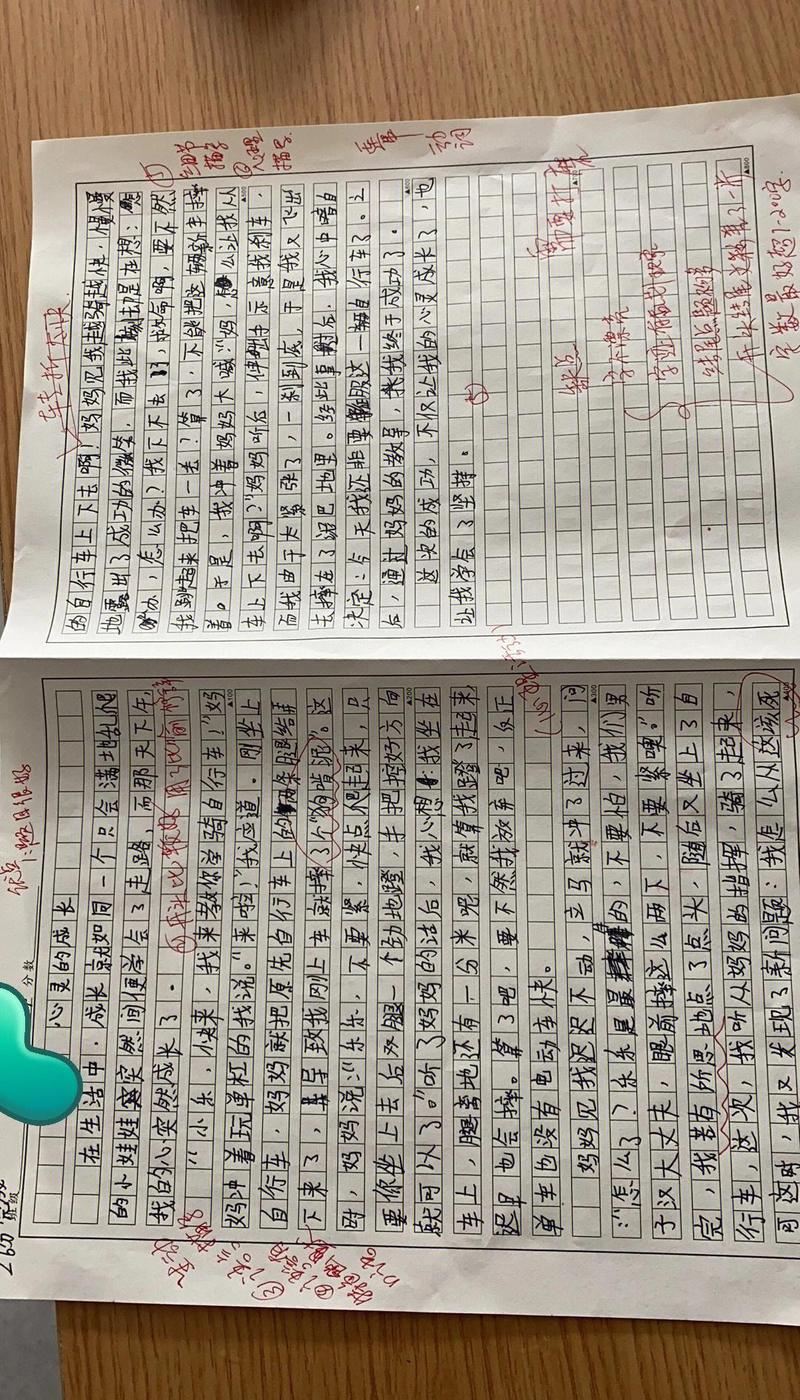 分数
心灵的成长
在生活中，成长就如同一个只会满地乱爬
的小娃娃突然间便学会了走路，而那天下午，
我的心突然成长了。
"小乐，快来，我来教你学骑自行车！"妈
妈冲着玩单杠的我说。"来啦！"我应道。刚坐上
自行车，妈妈就把原先自行车上的
下来了，导致我刚上车就摔了个"狗啃泥"。这
时，妈妈说："乐乐，不要紧，快点爬起来，只
要你坐上去后双腿一个劲地蹬，手把控好方向
就可以了。"听了妈妈的话后，我心想：我坐在
车上，腿离地还有一分米呢，就算我蹬了起来，
迟早也会摔。算了吧，要不然我放弃吧，反正
单车也没有电动车快。
妈妈见我迟迟不动，立马就冲了过来，问
："怎么了？乐乐是最棒的，不要怕，我们男
子汉大丈夫，眼前摔这么两下，不要紧噢。"听
完，我若有所思地点了点头，随后又坐上了自
行车，这次，我听从妈妈的指挥，骑了起来，
可这时，我又发现了新问题：我怎么从这该死
的自行车上下去啊！妈妈见我越骑越快，慢慢
地露出了成功的微笑，而我此时却是在想：
办，怎么办？我下不去了，救命啊，要不然
我跳起来把车一丢？算了，不能把这辆新车摔
着。于是，我冲着妈妈大喊："妈，怎么让我从
车上下去啊？"妈妈听后，伸出手示意我刹车，
而我由于太紧张了，一刹到底，于是我又飞出
去摔在了泥巴地里。经此事后，我心中暗自
决定：今天我还非要驯服这一辆自行车了。之
后，通过妈妈的教导，我终于成功了。
这次的成功，不仅让我的心灵成长了，也
让我学会了坚持。
转折不快
细节
描写
②心理
描写
动词
缺点
字不漂亮
结尾点题
字数最好超
优点：题目很好